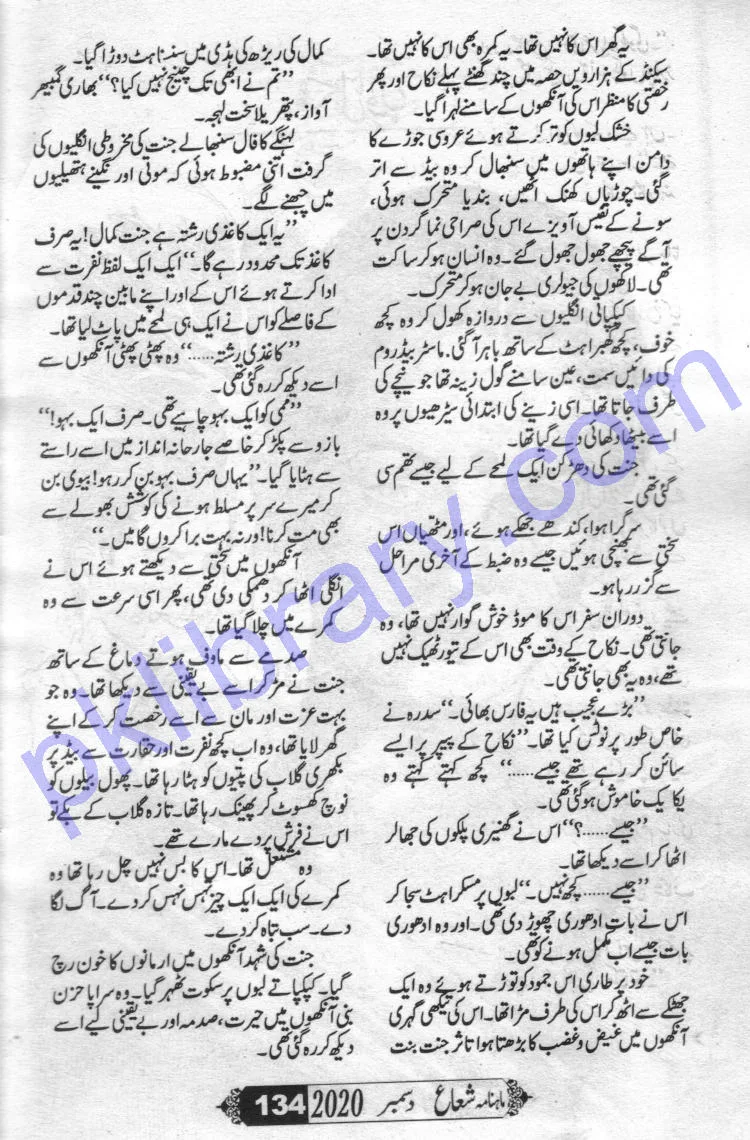 یہ گھر اس کا نہیں تھا۔ یہ کمرہ بھی اس کا نہیں تھا۔
سیکنڈ کے ہزارویں حصہ میں چند گھنٹے پہلے نکاح اور پھر
رخصتی کا منظر اس کی آنکھوں کے سامنے لہرا گیا۔
خشک لبوں کو تر کرتے ہوئے عروسی جوڑے کا
دامن اپنے ہاتھوں میں سنبھال کر وہ بیڈ سے اتر
گئی۔ چوڑیاں کھنک اٹھیں، بندیا متحرک ہوئی،
سونے کے نفیس آویزے اس کی صراحی نما گردن پر
آگے پیچھے جھول جھول گئے۔ وہ انسان ہو کر ساکت
تھی۔ لاکھوں کی جیولری بے جان ہو کر متحرک۔
کپکپاتی انگلیوں سے دروازہ کھول کر وہ کچھ
خوف، کچھ گھبراہٹ کے ساتھ باہر آ گئی۔ ماسٹر بیڈروم
کی دائیں سمت، عین سامنے گول زینہ تھا جو نیچے کی
طرف جاتا تھا۔ اسی زینے کی ابتدائی سیڑھیوں پر وہ
اسے بیٹھا دکھائی دے گیا تھا۔
جنت کی دھڑکن ایک لمحے کے لیے جیسے تھم سی
گئی تھی۔
سر گرا ہوا، کندھے جھکے ہوئے، اور مٹھیاں اس
سختی سے بھنچی ہوئیں جیسے وہ ضبط کے آخری مراحل
سے گزر رہا ہو۔
دوران سفر اس کا موڈ خوش گوار نہیں تھا، وہ
جانتی تھی۔ نکاح کے وقت بھی اس کے تیور ٹھیک نہیں
تھے، وہ یہ بھی جانتی تھی۔
’’بڑے عجیب ہیں یہ فارس بھائی۔‘‘ سدرہ نے
خاص طور پر نوٹس کیا تھا۔ ’’نکاح کے پیپر پر ایسے
سائن کر رہے تھے جیسے......‘‘ کچھ کہتے کہتے وہ
یکایک خاموش ہو گئی تھی۔
’’جیسے......؟‘‘ اس نے گھنیری پلکوں کی جھالر
اٹھا کر اسے دیکھا تھا۔
’’جیسے...... کچھ نہیں۔‘‘ لبوں پر مسکراہٹ سجا کر
اس نے بات ادھوری چھوڑ دی تھی۔ اور وہ ادھوری
بات جیسے اب مکمل ہونے کو تھی۔
خود پر طاری اس جمود کو توڑتے ہوئے وہ ایک
جھٹکے سے اٹھ کر اس کی طرف مڑا تھا۔ اس کی تیکھی گہری
آنکھوں میں غیض و غضب کا بڑھتا ہوا تاثر جنت بنت
کمال کی ریڑھ کی ہڈی میں سنسناہٹ دوڑا گیا۔
’’تم نے ابھی تک چینج نہیں کیا؟‘‘ بھاری گمبھیر
آواز، پتھریلا سخت لہجہ۔
لہنگے کا فال سنبھالے جنت کی مخروطی انگلیوں کی
گرفت اتنی مضبوط ہوئی کہ موتی اور نگینے ہتھیلیوں
میں چبھنے لگے۔
’’یہ ایک کاغذی رشتہ ہے جنت کمال! یہ صرف
کاغذ تک محدود رہے گا۔‘‘ ایک ایک لفظ نفرت سے
ادا کرتے ہوئے اس کے اور اپنے مابین چند قدموں
کے فاصلے کو اس نے ایک ہی لمحے میں پاٹ لیا تھا۔
’’کاغذی رشتہ......‘‘ وہ پھٹی پھٹی آنکھوں سے
اسے دیکھ کر رہ گئی تھی۔
’’ممی کو ایک بہو چاہیے تھی۔ صرف ایک بہو!‘‘
بازو سے پکڑ کر خاصے جارحانہ انداز میں اسے راستے
سے ہٹایا گیا۔ ’’یہاں صرف بہو بن کر رہو! بیوی بن
کر میرے سر پر مسلط ہونے کی کوشش بھولے سے
بھی مت کرنا! ورنہ بہت برا کروں گا میں۔‘‘
آنکھوں میں سختی سے دیکھتے ہوئے اس نے
انگلی اٹھا کر دھمکی دی تھی، پھر اسی سرعت سے وہ
کمرے میں چلا گیا تھا۔
صدمے سے ماؤف ہوتے دماغ کے ساتھ
جنت نے مڑ کر اسے بے یقینی سے دیکھا تھا۔ وہ جو
بہت عزت اور مان سے اسے رخصت کر کے اپنے
گھر لایا تھا، وہ اب کچھ نفرت اور حقارت سے بیڈ پر
بکھری گلاب کی پتیوں کو ہٹا رہا تھا۔ پھول بیلوں کو
نوچ کھسوٹ کر پھینک رہا تھا۔ تازہ گلاب کے بکے تو
اس نے فرش پر دے مارے تھے۔
وہ مشتعل تھا۔ اس کا بس نہیں چل رہا تھا وہ
کمرے کی ایک ایک چیز تہس نہس کر دے۔ آگ لگا
دے۔ سب تباہ کر دے۔
جنت کی شہد آنکھوں میں ارمانوں کا خون رچ
گیا۔ کپکپاتے لبوں پر سکوت ٹھہر گیا۔ وہ سراپا حزن
بنی آنکھوں میں حیرت، صدمہ اور بے یقینی لیے اسے
دیکھ کر رہ گئی تھی۔
ماہنامہ شعاع دسمبر 2020 134
pklibrary.com